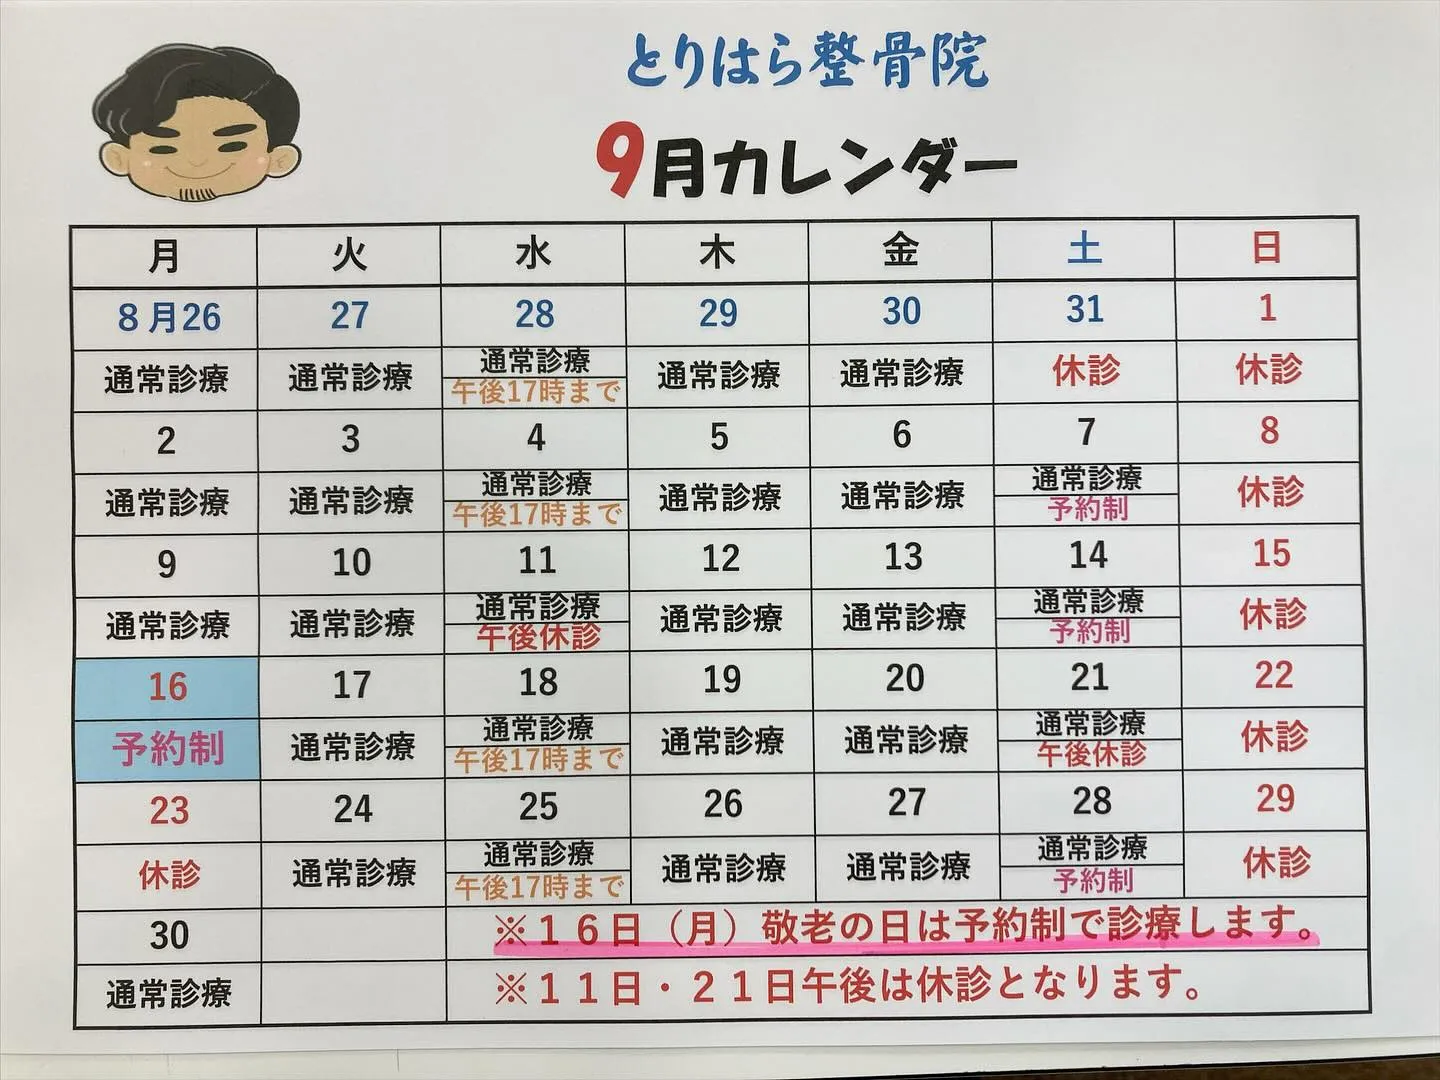 とりはら整骨院
9月カレンダー
月 火 水 木 金 土 日
8月26 27 28 29 30 31 1
通常診療 通常診療 通常診療 午後17時まで 通常診療 通常診療 休診 休診
2 3 4 5 6 7 8
通常診療 通常診療 通常診療 午後17時まで 通常診療 通常診療 通常診療 予約制 休診
9 10 11 12 13 14 15
通常診療 通常診療 通常診療 午後休診 通常診療 通常診療 通常診療 予約制 休診
16 17 18 19 20 21 22
予約制 通常診療 通常診療 午後17時まで 通常診療 通常診療 通常診療 午後休診 休診
23 24 25 26 27 28 29
休診 通常診療 通常診療 午後17時まで 通常診療 通常診療 通常診療 予約制 休診
30 ※16日（月）敬老の日は予約制で診療します。
通常診療 ※11日・21日午後は休診となります。